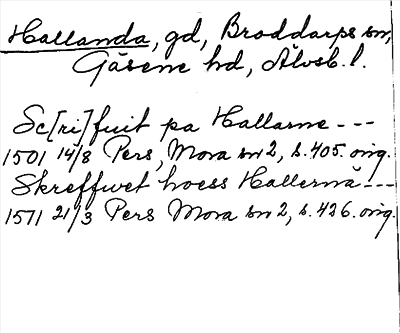 Hallanda, gd, Broddarps sn,
Gäsene hd, Älvsb. l.
Sc[ri]fuit pa Hallarne ---
1501 14/8 Pers, Mora sn 2, s. 405. orig.
Skreffwet hoess Hallernä ---
1511 21/3 Pers Mora sn 2, s. 426. orig.